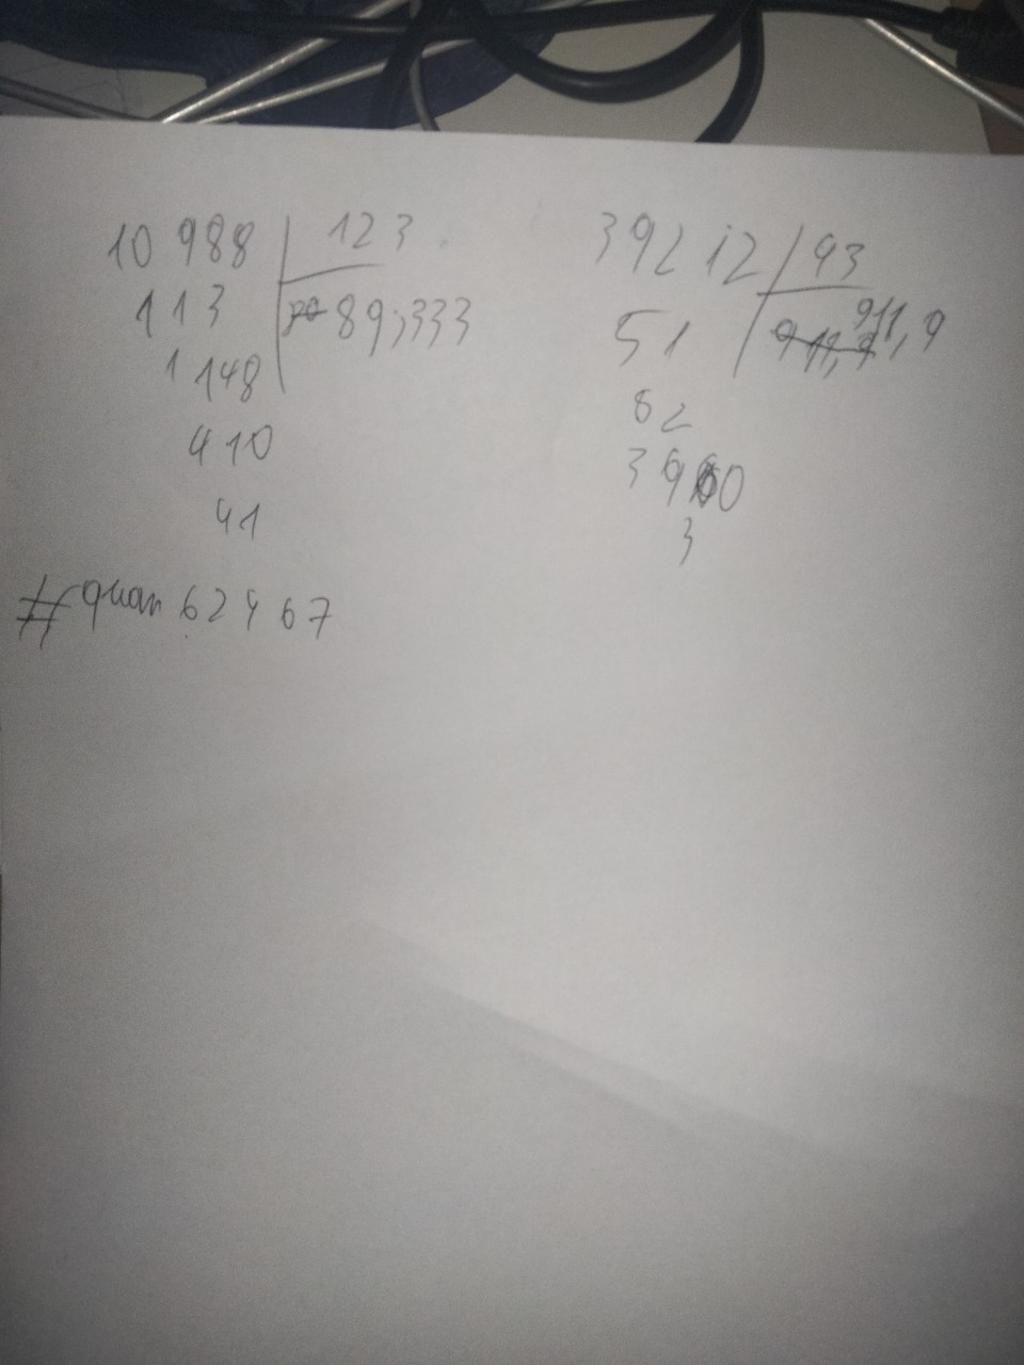 10 988 123
113 89,333
1148
410
41
39212 43
51 911,9
82
390
3
#quan62467